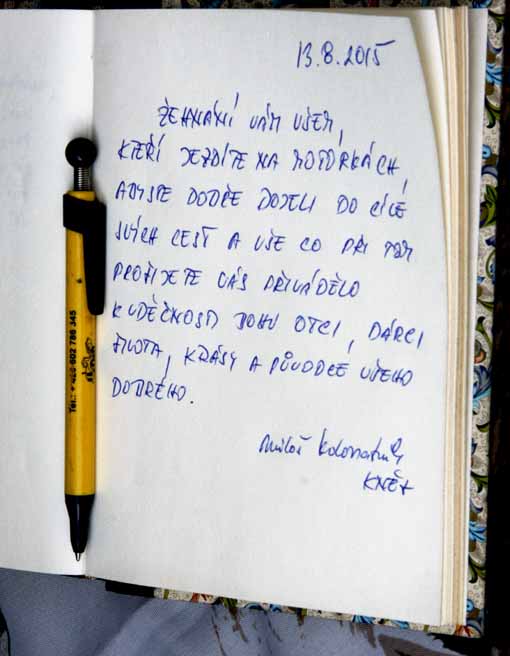 13.8.2015
ŽEHNÁNÍ VÁM VŠEM,
KTEŘÍ JEZDÍTE NA MOTORKÁCH,
ABYSTE DOBŘE DOJELI DO CÍLE
SVÝCH CEST A VŠE CO PŘI TOM
PROŽIJETE VÁS PŘIVÁDĚLO
K VDĚČNOSTI BOHU OTCI, DÁRCI
ŽIVOTA, KRÁSY A PŮVODCE VŠEHO
DOBRÉHO.
Miloš
KNĚZ
Tel.: + 420 602 786 345